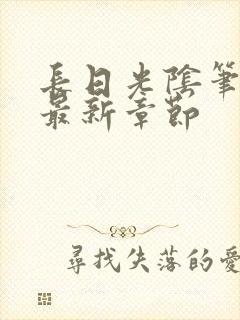 長日光陰筆
最新章節
尋找失落的愛